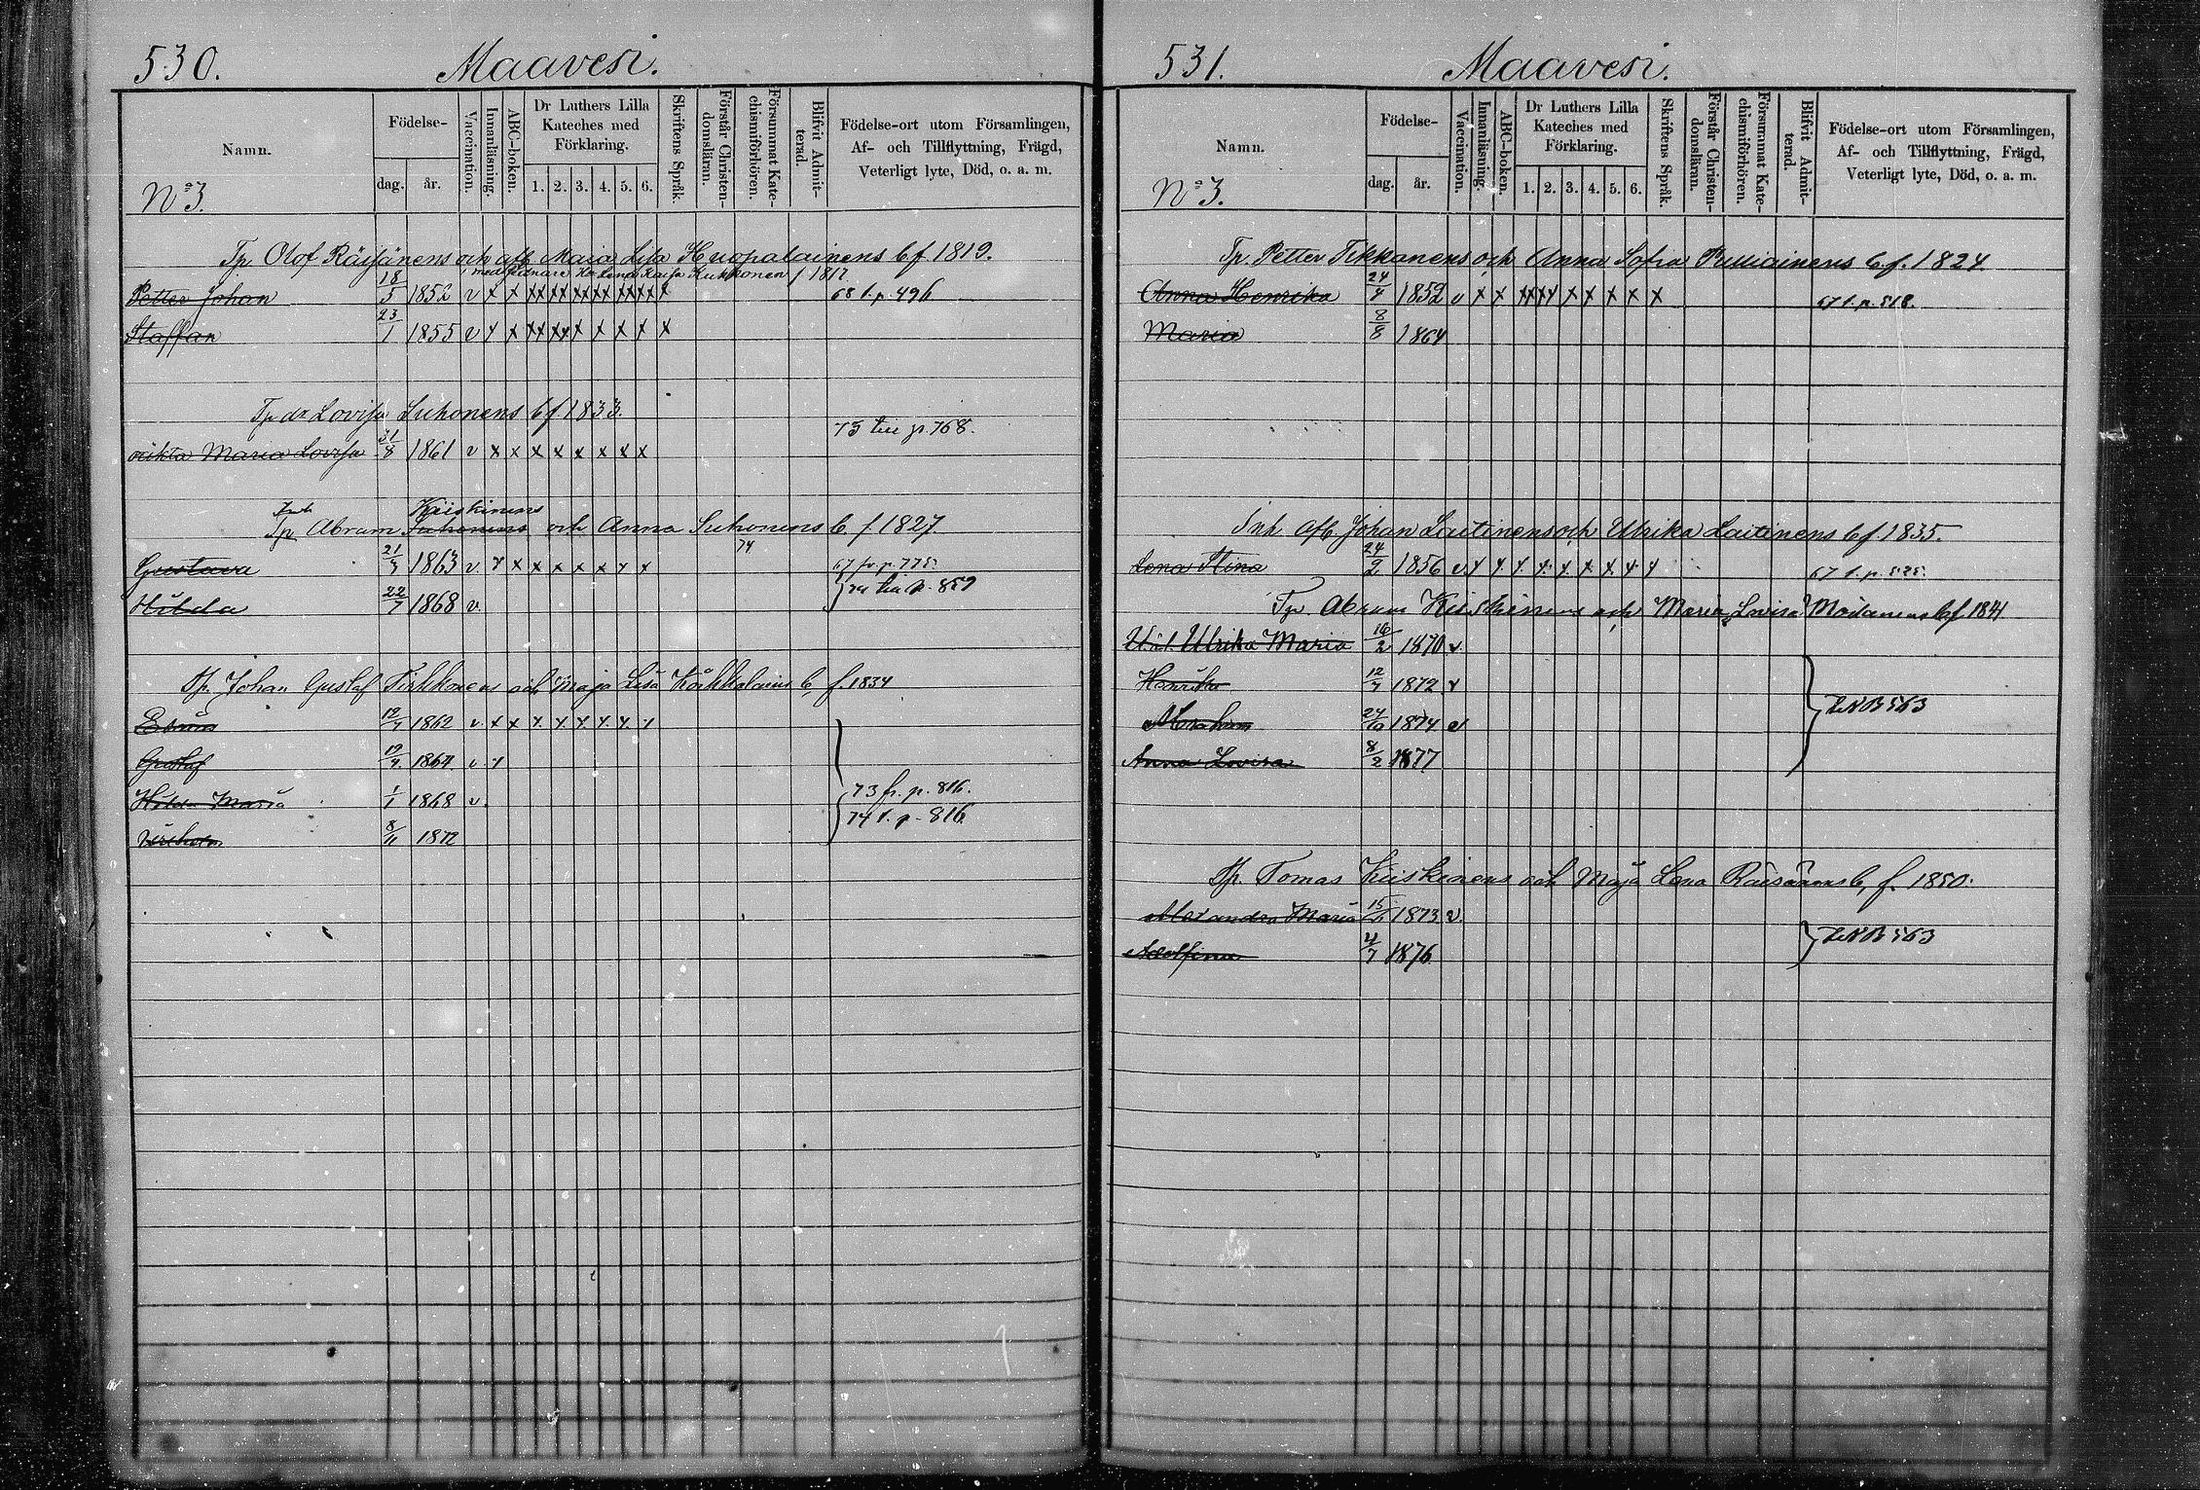 530. Maavesi.
Namn.
No 3.
Födelse-
dag. år.
Vaccination.
Innanläsning.
ABC-boken.
Dr Luthers Lilla Kateches med Förklaring.
1. 2. 3. 4. 5. 6.
Skriftens Språk.
Förstår Christendomsläran.
Försummat Katechismiförhören.
Blifvit Admitterad.
Födelse-ort utom Församlingen,
Af- och Tillflyttning, Frägd,
Veterligt lyte, Död, o. a. m.
Tp Olof Räisänens och afl. Maria Lisa Huopalainens b f 1819.
Kukkonen f 1817
Petter Johan 18/5 1852 v x x xx xx xx xx xx xx x 68 t. p. 496
Staffan 23/1 1855 v x x xx xx x x x x x
Tp dr Lovisa Suhonens b f 1833.
73 till p. 768.
oäkta Maria Lovisa 31/8 1861 v x x x x x x x x
Inh Kiiskinens
Tp Abram Suhonens och Anna Suhonens b. f. 1827
74
Gustava 21/7 1863 v. x x x x x x x x 67 fr. p. 775.
Hilda 22/7 1868 v. till p. 859
Tp. Johan Gustaf Tirkkonens och Maja Lisa b, f. 1834
12/7 1862 v. x x x x x x x x
Gustaf 19/7 1864 v x
Hilda Maria 1/1 1868 v. 73 fr. p. 816.
8/11 1872 74 t. p. 816
531. Maavesi.
Namn.
No 3.
Födelse-
dag. år.
Vaccination.
Innanläsning.
ABC-boken.
Dr Luthers Lilla Kateches med Förklaring.
1. 2. 3. 4. 5. 6.
Skriftens Språk.
Förstår Christendomsläran.
Försummat Katechismiförhören.
Blifvit Admitterad.
Födelse-ort utom Församlingen,
Af- och Tillflyttning, Frägd,
Veterligt lyte, Död, o. a. m.
Tp Petter Tikkanens och Anna Sofia Pulliainens b. f. 1824.
Anna Henrika 24/4 1852 v x x xx xx x x x x x 67 t. p. 818.
Maria 8/8 1864
Inh afl. Johan Laitinens och Ulrika Laitinens b f. 1835.
Lena Stina 24/2 1856 v x x x x x x x x x 67 t. p.
Tp Abram Kiiskinens och Maria Lovisa b f. 1841
Ulrika Maria 16/2 1870 v.
Henrika 12/7 1872 v
Abraham 24/10 1874 v
563
Anna Lovisa 8/2 1877
Tp. Tomas Kiiskinens och Maja Lena Räisänens b, f. 1850.
Alexandra Maria 1873 v.
563
Adolfina 4/7 1876